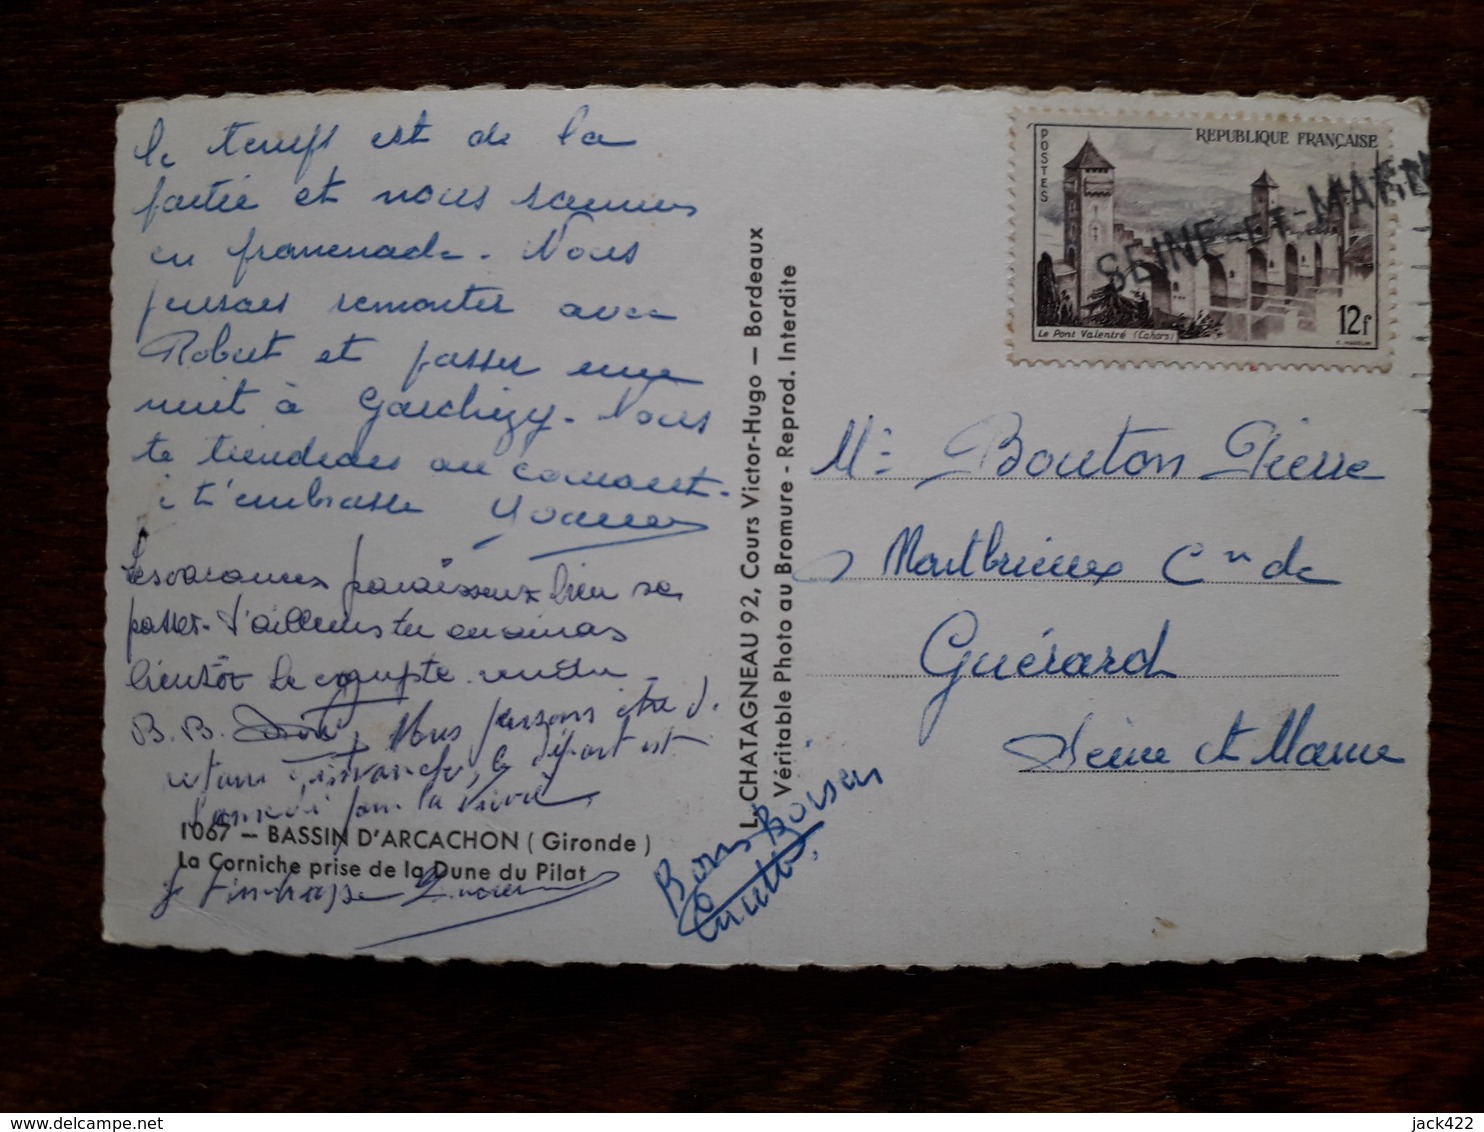 le temps est de la
partie et nous sommes
en promenade. Nous
pensons remonter avec
Robert et passer une
nuit à Garchizy. Nous
te tiendrons au courant.
t'embrasse Yvonne
Les vacances paraissent bien se
passer. D'ailleurs tu en auras
bientôt le compte rendu
B. B. Nous pensons être d.
le départ est
1067 — BASSIN D'ARCACHON (Gironde)
La Corniche prise de la Dune du Pilat
Je t'embrasse Lucien
Bons Baisers
Ginette
L. CHATAGNEAU 92, Cours Victor-Hugo — Bordeaux
Véritable Photo au Bromure - Reprod. Interdite
POSTES
REPUBLIQUE FRANÇAISE
SEINE-ET-MARN
Le Pont Valentré (Cahors)
12f
Mr Bouton Pierre
Montbrieux Cne de
Guérard
Seine et Marne
jack422